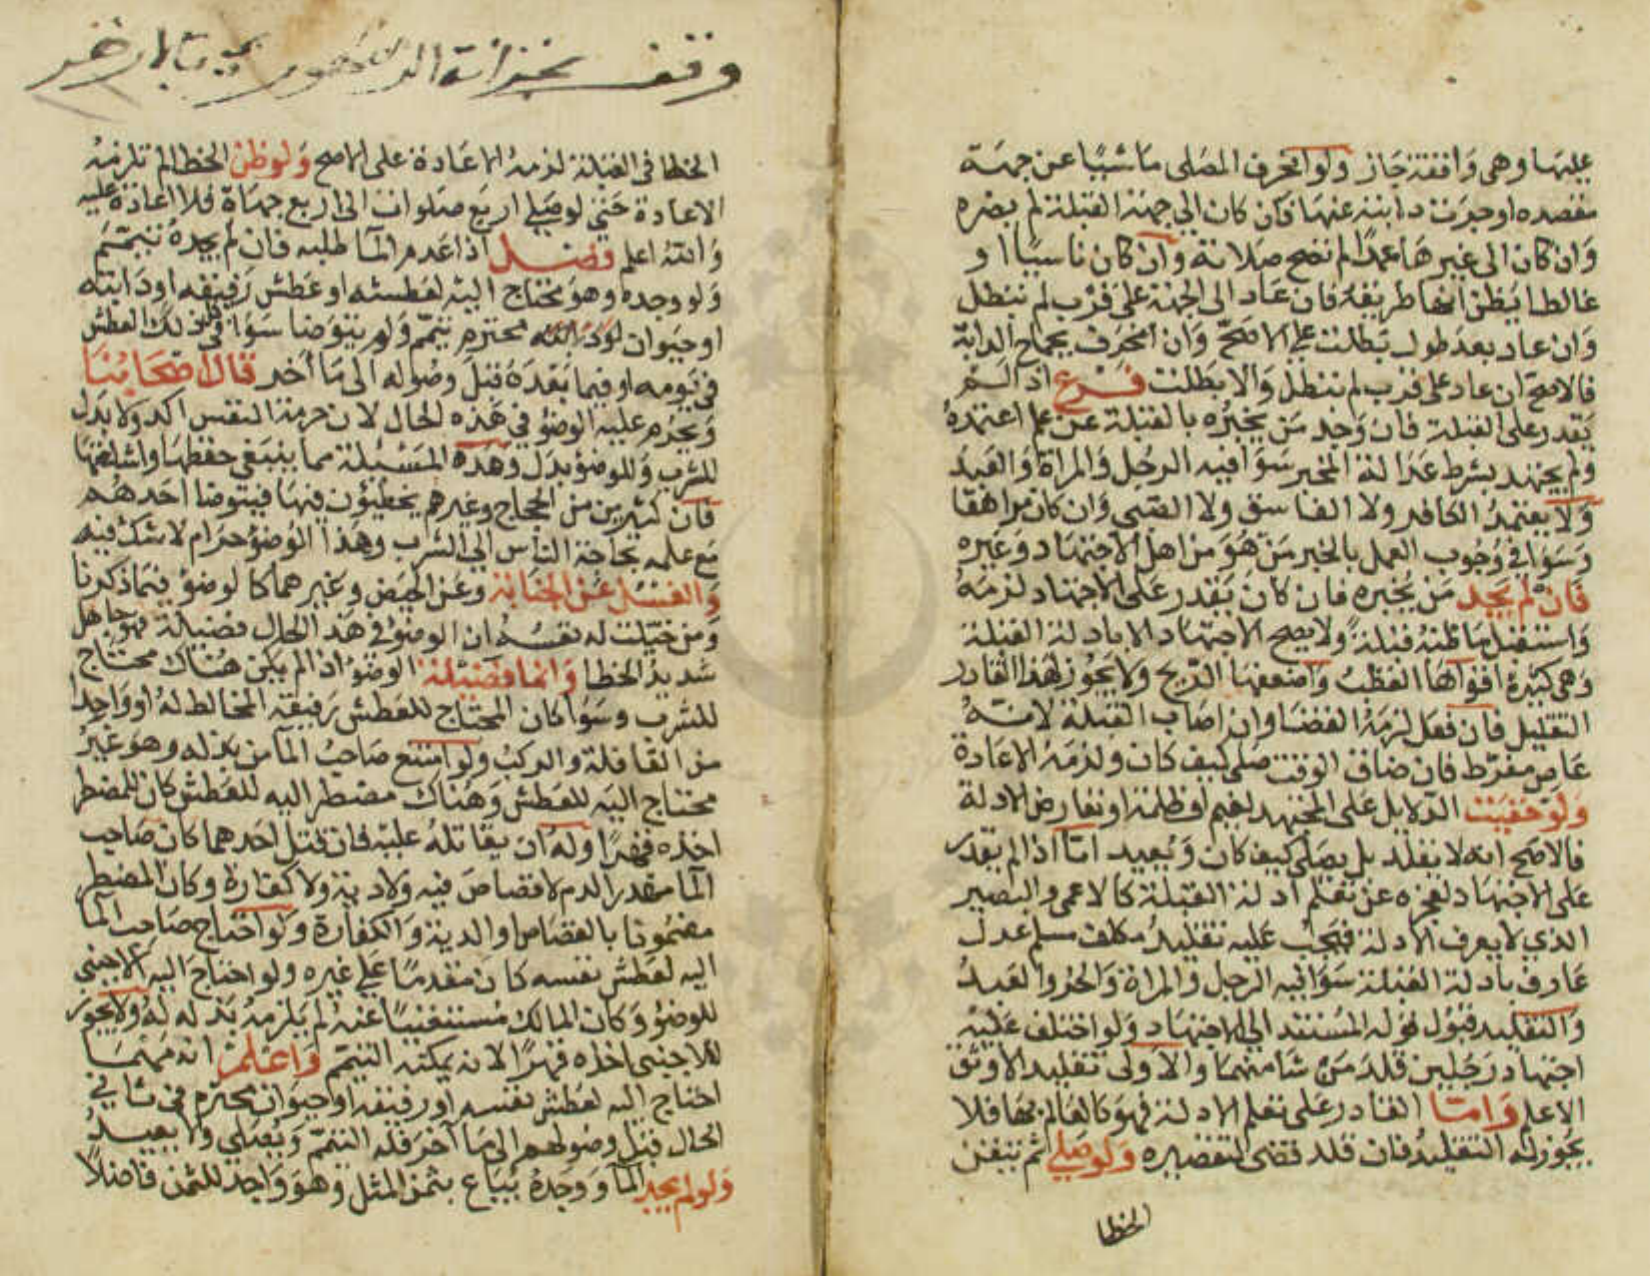 عليها وهي واقفة جاز ولو انحرف المصلى ماشيا عن جهة
مقصده او حرفت دابته عنها فان كان الى جهة القبلة لم يضره
وان كان الى غيرها عمدا لم تصح صلاته وان كان ناسيا او
غالطا يظن انها طريقه فان عاد الى الجهة على قرب لم تبطل
وان عاد بعد طول بطلت على الاصح وان انحرف بجماح الدابة
فالاصح ان عاد على قرب لم تبطل والا بطلت فرع اذا لم
يقدر على القبلة فان وجد من يخبره بالقبلة عن علم اعتمده
ولم يجتهد بشرط عدالة المخبر سوا فيه الرجل والمراة والعبد
ولا يعتمد الكافر ولا الفاسق ولا الصبي وان كان مراهقا
وسوا في وجوب العمل بالخبر من هو من اهل الاجتهاد وغيره
فان لم يجد من يخبره فان كان يقدر على الاجتهاد لزمه
واستقبل ما ظنه قبلة ولا يصح الاجتهاد الا بادلة القبلة
وهي كثيرة اقواها القطب واضعفها الريح ولا يجوز لهذا القادر
التقليد فان فعل لزمه القضا وان اصاب القبلة لانه
عاص مفرط فان ضاق الوقت صلى كيف كان ولزمه الاعادة
ولو خفيت الدلايل على المجتهد لغيم او ظلمة او تعارض الادلة
فالاصح انه لا يقلد بل يصلى كيف كان ويعيد اما اذا لم يقدر
على الاجتهاد لعجزه عن تعلم ادلة القبلة كالاعمى والبصير
الذي لا يعرف الادلة فيجب عليه تقليد مكلف مسلم عدل
عارف بادلة القبلة سوا فيه الرجل والمراة والحر والعبد
والتقليد قبول قوله المستند الى الاجتهاد ولو اختلف عليه
اجتهاد رجلين قلد من شا منهما والاولى تقليد الاوثق
الاعلم واما القادر على تعلم الادلة فهو كالعالم بها فلا
يجوز له التقليد فان قلد قضى لتقصيره ولو صلى ثم تيقن
الخطا
وقف بخزانة
الخطا في القبلة لزمه الاعادة على الاصح ولو ظن الخطا لم تلزمه
الاعادة حتى لو صلى اربع صلوات الى اربع جهاة فلا اعادة عليه
والله اعلم فصل اذا عدم الما طلبه فان لم يجده تيمم
ولو وجده وهو محتاج اليه لعطشه او عطش رفيقه او دابته
او حيوان محترم تيمم ولم يتوضا سوا في ذلك العطش
في يومه او فيما بعده قبل وصوله الى ما اخر قال اصحابنا
ويحرم عليه الوضو في هذه الحال لان حرمة النفس اكد ولا بدل
للشرب وللوضو بدل وهذه المسئلة مما ينبغي حفظها واشاعتها
فان كثيرين من الحجاج وغيرهم يخطيون فيها فيتوضا احدهم
مع علمه بحاجة الناس الى الشرب وهذا الوضو حرام لا شك فيه
والغسل عن الجنابة وعن الحيض وغيرهما كالوضو فيما ذكرنا
ومن خيلت له نفسه ان الوضو في هذ الحال فضيلة فهو جاهل
شديد الخطا وانما فضيلة الوضو اذا لم يكن هناك محتاج
للشرب وسوا كان المحتاج للعطش رفيقه المخالط له او واحدا
من القافلة والركب ولو امتنع صاحب الما من بذله وهو غير
محتاج اليه للعطش وهناك مضطر اليه للعطش كان للمضطر
اخذه قهرا وله ان يقاتله عليه فان قتل احدهما كان صاحب
الما مهدر الدم لا قصاص فيه ولا دية ولا كفارة وكان المضطر
مضمونا بالقصاص والدية والكفارة ولو احتاج صاحب الما
اليه لعطش نفسه كان مقدما على غيره ولو احتاج اليه الاجنبي
للوضو وكان المالك مستغنيا عنه لم يلزمه بذله له ولا يجوز
للاجنبي اخذه قهرا لانه يمكنه التيمم واعلم انه مهما
احتاج اليه لعطش نفسه او رفيقه او حيوان محترم في ثاني
الحال قبل وصولهم الى ما اخر فله التيمم ويصلى ولا يعيد
ولو لم يجد الما ووجده يباع بثمن المثل وهو واجد للثمن فاضلا